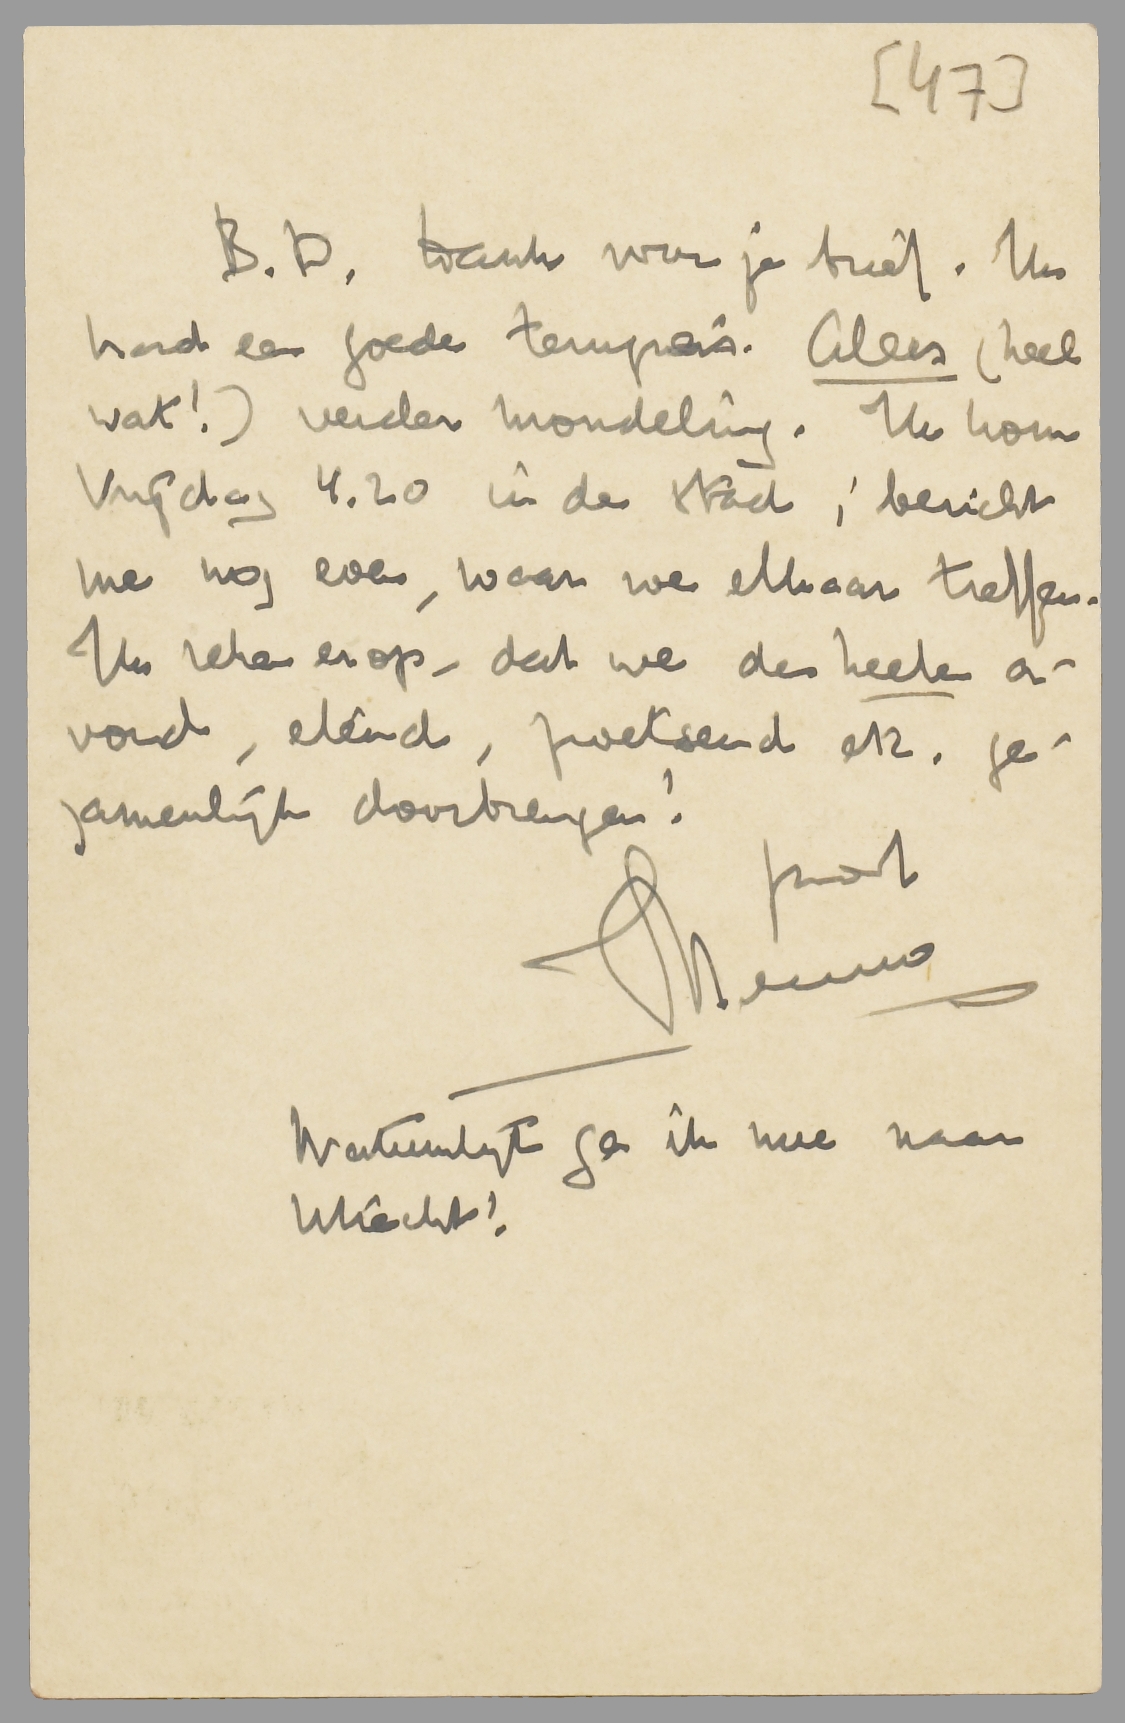 [47]
B.D, Dank voor je brief. Ik
had een goede terugreis. Alles (heel
wat!) verder mondeling. Ik kom
Vrijdag 4.20 in de stad; bericht
me nog even, waar we elkaar treffen.
Ik reken erop, dat we den heelen a-
vond, etend, pratend etc. ge-
zamenlijk doorbrengen!
Menno
Natuurlijk ga ik mee naar
Utrecht!